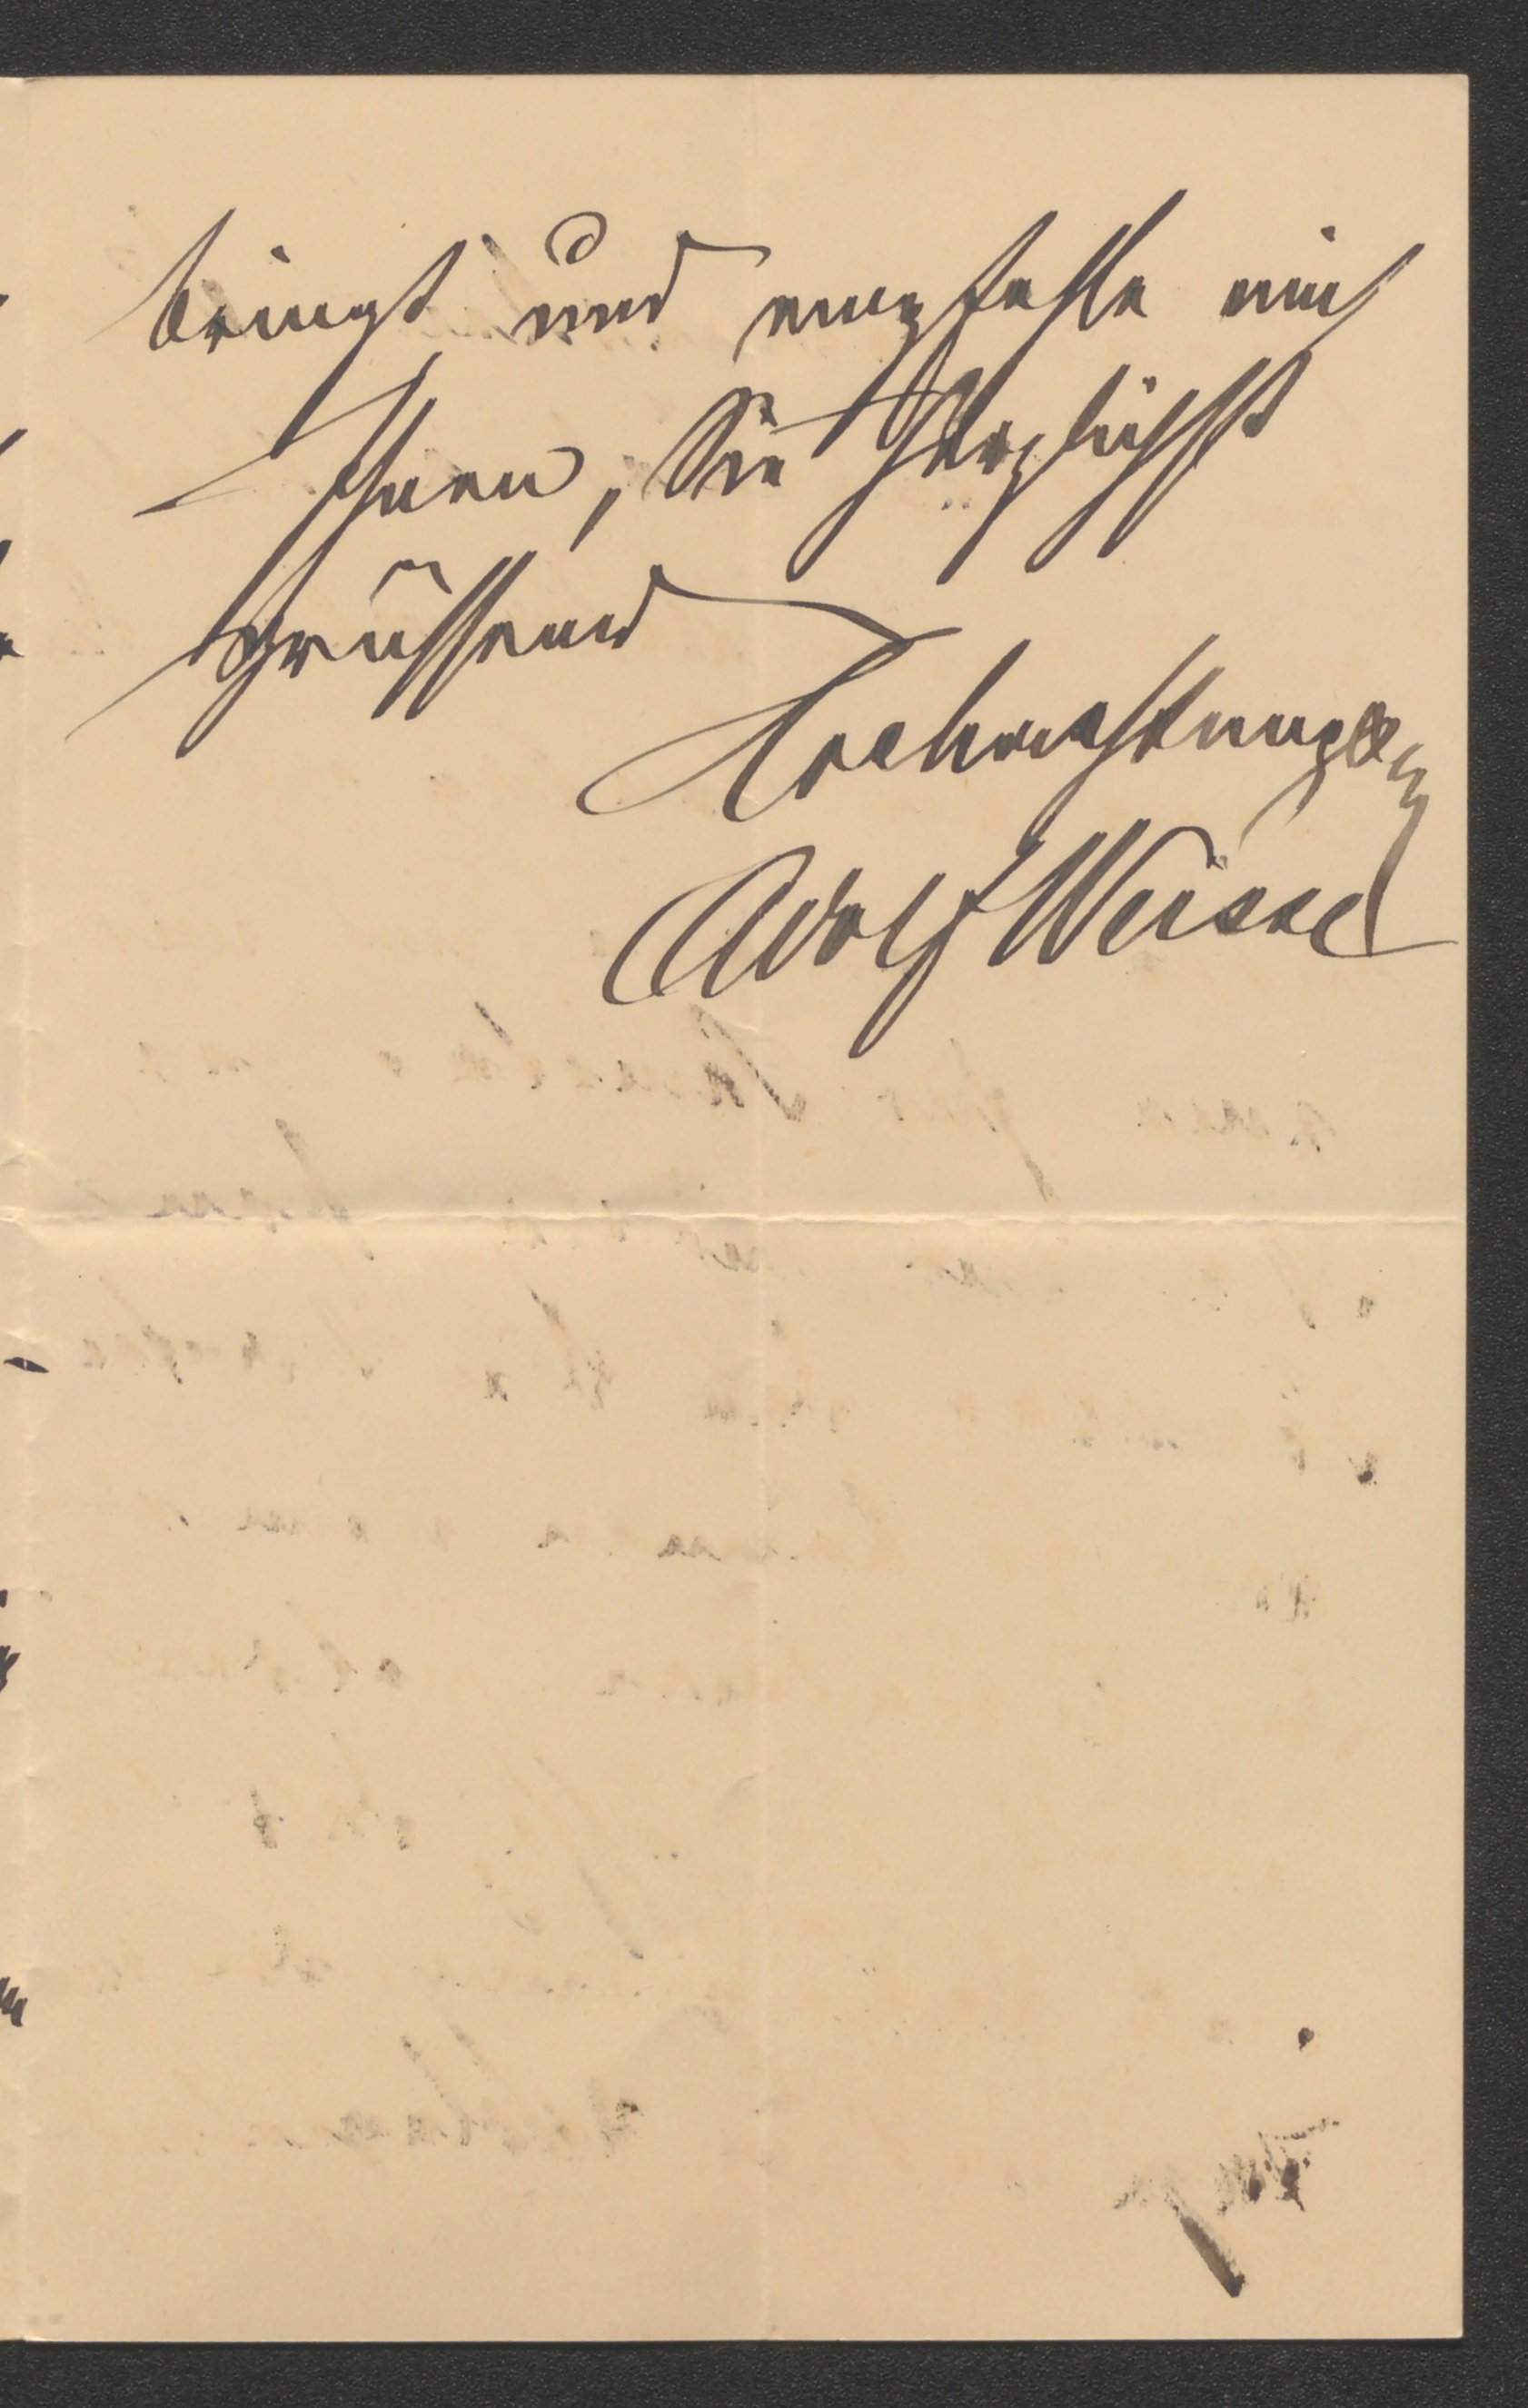 bringt und empfehle mich
Ihnen, Sie herzlichst
grüssend
Hochachtungsv
Adolf Weisse